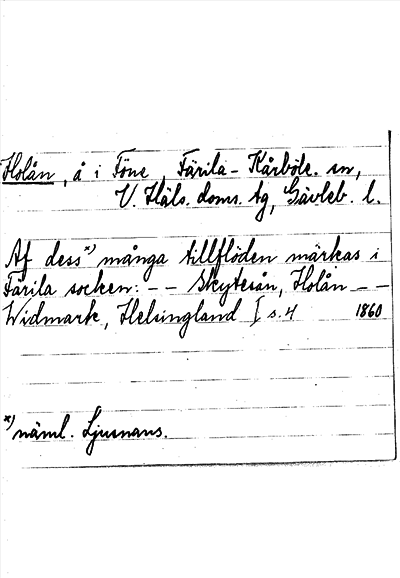 Holån, å i Föne, Färila-Kårböle. sn,
V. Häls. doms. tg, Gävleb. l.
Af dess*) många tillflöden märkas i
Färila socken: – – Skytesån, Holån – –
Widmark, Helsingland I s. 4 1860
*) näml. Ljusnans.